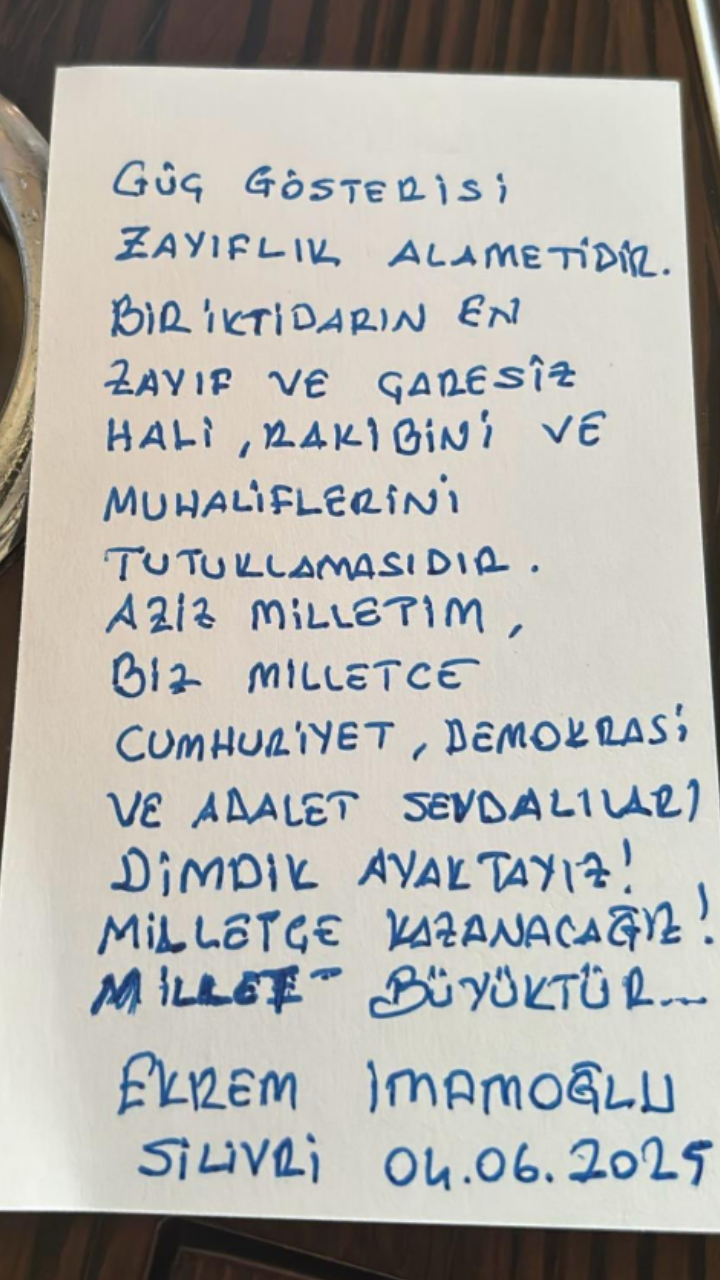 GÜÇ GÖSTERİSİ
ZAYIFLIK ALAMETİDİR.
BİR İKTİDARIN EN
ZAYIF VE ÇARESİZ
HALİ, RAKİBİNİ VE
MUHALİFLERİNİ
TUTUKLAMASIDIR.
AZİZ MİLLETİM,
BİZ MİLLETCE
CUMHURİYET, DEMOKRASİ
VE ADALET SEVDALILARI
DİMDİK AYAKTAYIZ!
MİLLETÇE KAZANACAĞIZ!
MİLLET BÜYÜKTÜR...
EKREM İMAMOĞLU
SİLİVRİ 04.06.2025